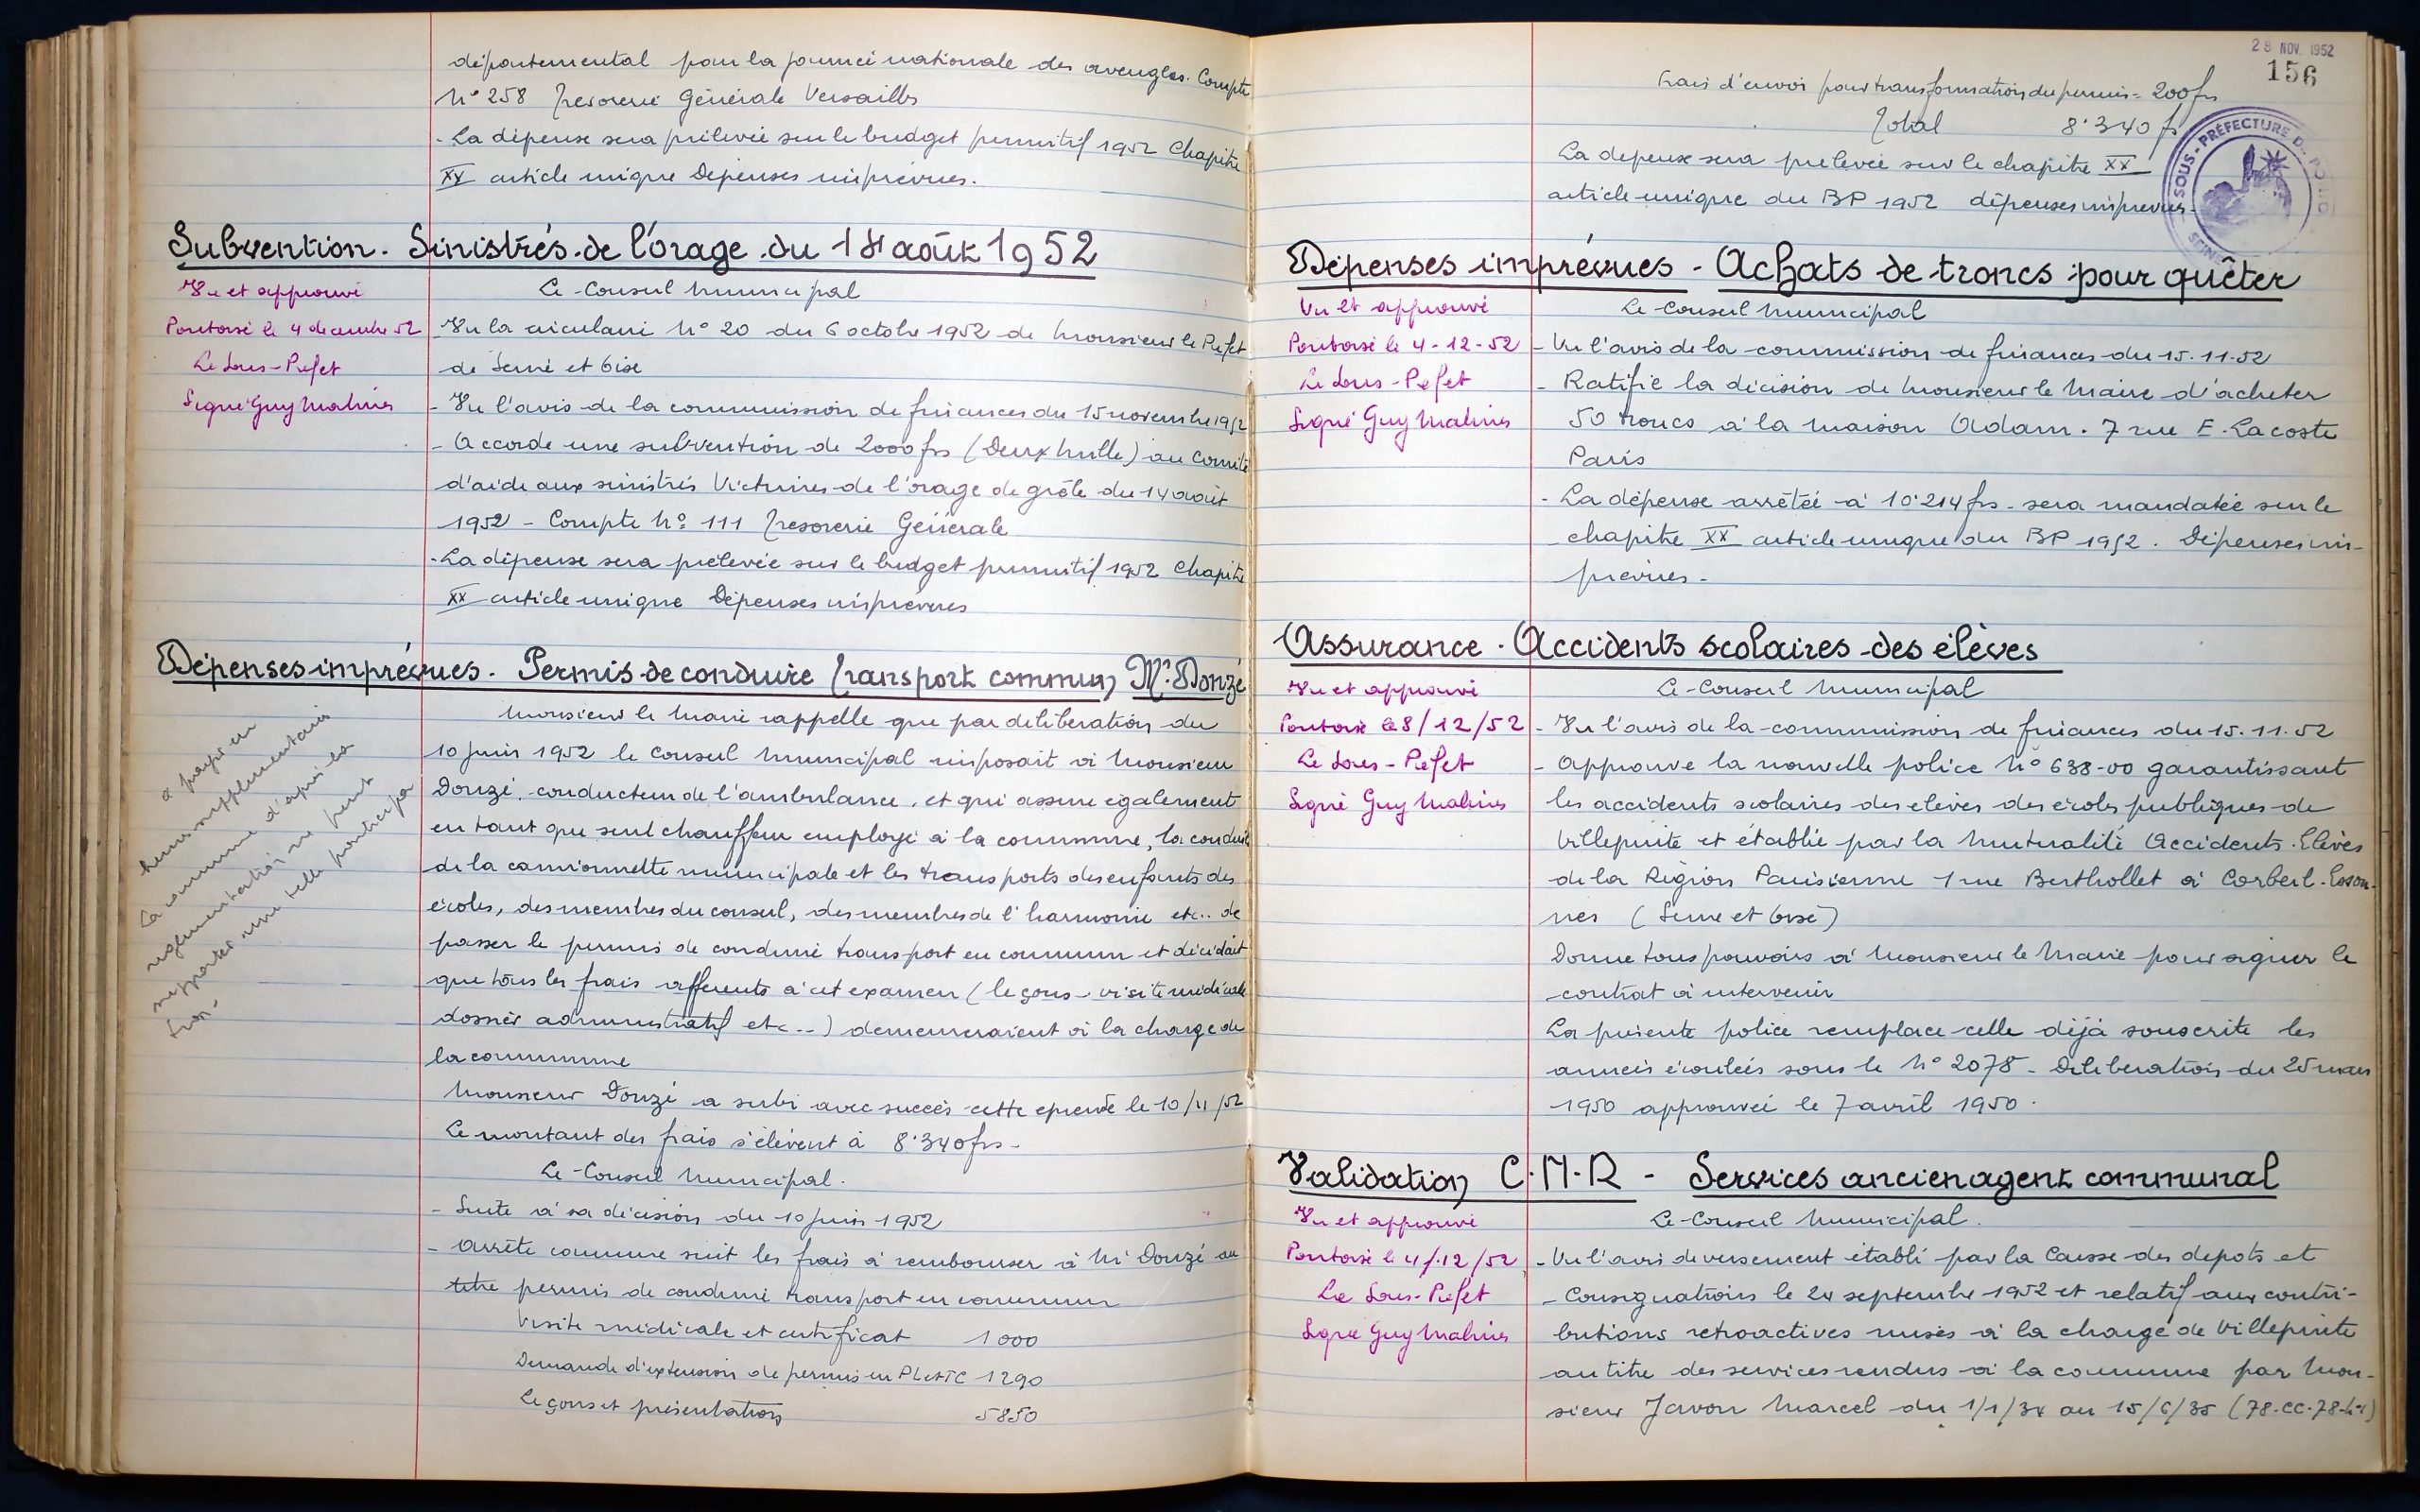 départemental pour la journée nationale des aveugles. Compte
N° 258 Trésorerie Générale Versailles
- La dépense sera prélevée sur le budget primitif 1952 Chapitre
XX article unique Dépenses imprévues.
Subvention. Sinistrés de l'orage du 14 août 1952
Vu et approuvé
Pontoise le 4 decembre 52
Le Sous-Prefet
Signé Guy Malines
Le Conseil Municipal
- Vu la circulaire N° 20 du 6 octobre 1952 de Monsieur le Prefet
de Seine et Oise
- Vu l'avis de la commission de finances du 15 novembre 1952
- Accorde une subvention de 2000 frs (Deux Mille) au Comité
d'aide aux sinistrés Victimes de l'orage de grêle du 14 août
1952 - Compte N° 111 Tresorerie Générale
- La dépense sera prélevée sur le budget primitif 1952 Chapitre
XX article unique Dépenses imprévues
Dépenses imprévues. Permis de conduire Transport commun Mr. Donzé
à payer en
heures supplémentaires
La commune d'après la
réglementation ne peut
supporter une telle participa
tion.
Monsieur le Maire rappelle que par deliberation du
10 juin 1952 le Conseil Municipal imposait à Monsieur
Donzé, conducteur de l'ambulance, et qui assure également
en tant que seul chauffeur employé à la commune, la conduite
de la camionnette municipale et les transports des enfants des
écoles, des membres du conseil, des membres de l'harmonie etc.. de
passer le permis de conduire transport en commun et décidait
que tous les frais afferents à cet examen (leçons - visite médicale
dossier administratif etc...) demeureraient à la charge de
la commune
Monsieur Donzé a subi avec succès cette epreuve le 10/11/52
Le montant des frais s'élèvent à 8.340 frs -
Le Conseil Municipal.
- Suite à sa décision du 10 juin 1952
- Arrête comme suit les frais à rembourser à Mr Donzé au
titre permis de conduire transport en commun
Visite médicale et certificat 1000
Demande d'extension de permis en PL et TC 1290
Leçons et présentation 5850
28 NOV. 1952
156
Frais d'envoi pour transformation du permis = 200 frs
Total 8.340 fr
La dépense sera prélevée sur le chapitre XX
article unique du BP 1952 dépenses imprévues -
SOUS-PRÉFECTURE DE
SEINE
Dépenses imprévues - Achats de troncs pour quêter
Vu et approuvé
Pontoise le 4-12-52
Le Sous-Préfet
Signé Guy Malines
Le Conseil Municipal
- Vu l'avis de la commission de finances du 15.11.52
- Ratifie la décision de Monsieur le Maire d'acheter
50 troncs à la maison Adam. 7 rue E. Lacoste
Paris
- La dépense arrêtée à 10.214 frs - sera mandatée sur le
chapitre XX article unique du BP 1952. Dépenses im-
prévues -
Assurance. Accidents scolaires des élèves
Vu et approuvé
Pontoise le 8/12/52
Le Sous-Préfet
Signé Guy Malines
Le Conseil Municipal
- Vu l'avis de la commission de finances du 15.11.52
- Approuve la nouvelle police N° 638-00 garantissant
les accidents scolaires des élèves des écoles publiques de
Villepinte et établie par la Mutualité Accidents. Elèves
de la Région Parisienne 1 rue Berthollet à Corbeil-Esson-
nes (Seine et Oise)
Donne tous pouvoirs à Monsieur le Maire pour signer le
contrat à intervenir
La présente police remplace celle déjà souscrite les
années écoulées sous le N° 2078 - Deliberation du 25 mars
1950 approuvée le 7 avril 1950.
Validation C.N.R - Services ancien agent communal
Vu et approuvé
Pontoise le 4/12/52
Le Sous-Préfet
Signé Guy Malines
Le Conseil Municipal.
- Vu l'avis de versement établi par la Caisse des depots et
- Consignations le 24 septembre 1952 et relatif aux contri-
butions retroactives mises à la charge de Villepinte
au titre des services rendus à la commune par Mon-
sieur Javon Marcel du 1/1/34 au 15/6/35